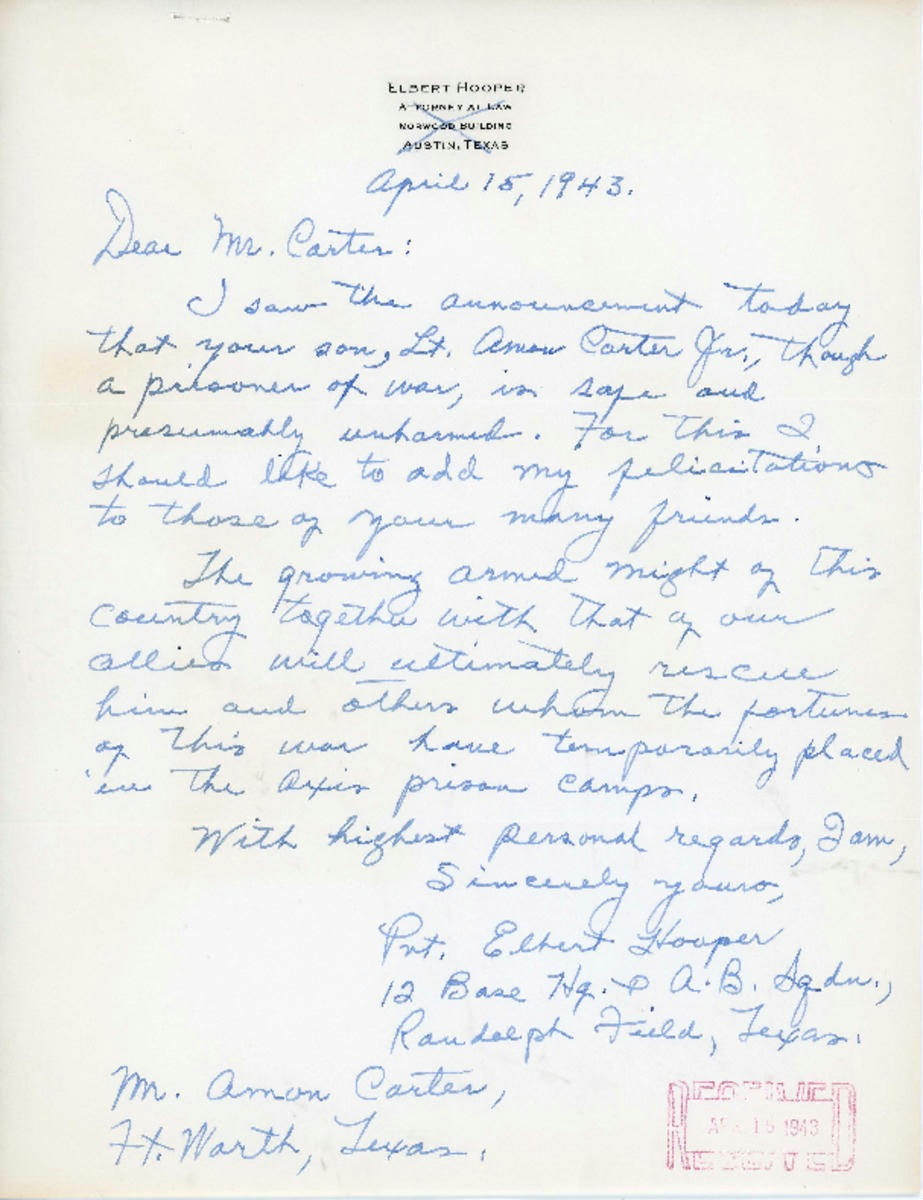 ELBERT HOOPER
ATTORNEY AT LAW
NORWOOD BUILDING
AUSTIN, TEXAS
April 15, 1943.
Dear Mr. Carter:
I saw the announcement today
that your son, Lt. Amon Carter Jr., though
a prisoner of war, is safe and
presumably unharmed. For this I
should like to add my felicitations
to those of your many friends.
The growing armed might of this
country together with that of our
allies will ultimately rescue
him and others whom the fortunes
of this war have temporarily placed
in the Axis prison camps.
With highest personal regards, I am,
Sincerely yours,
Pvt. Elbert Hooper
12 Base Hq. & A.B. Sqdn.,
Randolph Field, Texas.
Mr. Amon Carter,
Ft. Worth, Texas.
RECEIVED
APR 16 1943
RECEIVED